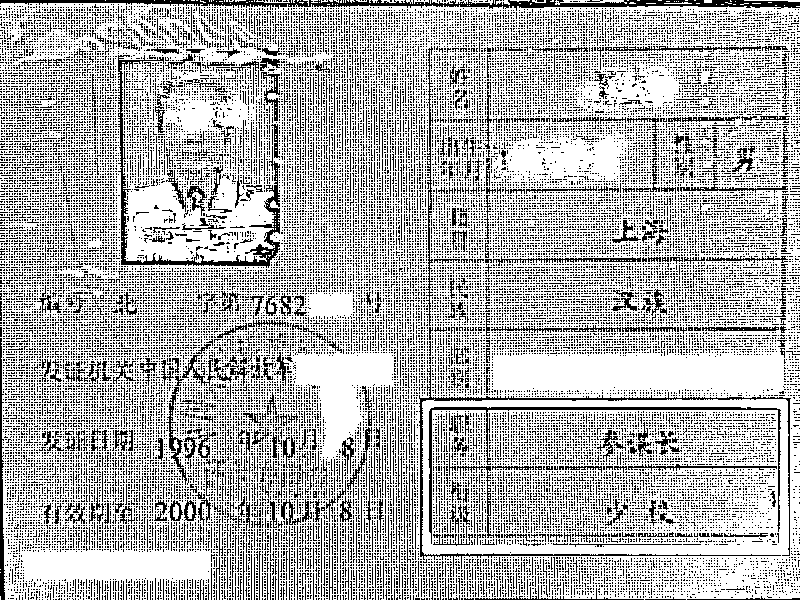 编号 北 字第 7682 号
发证机关 中国人民解放军
发证日期 1996 年 10 月 8 日
有效期至 2000 年 10 月 8 日
姓名
性别 男
籍贯 上海
民族 汉族
职务 参谋长
衔级 少校